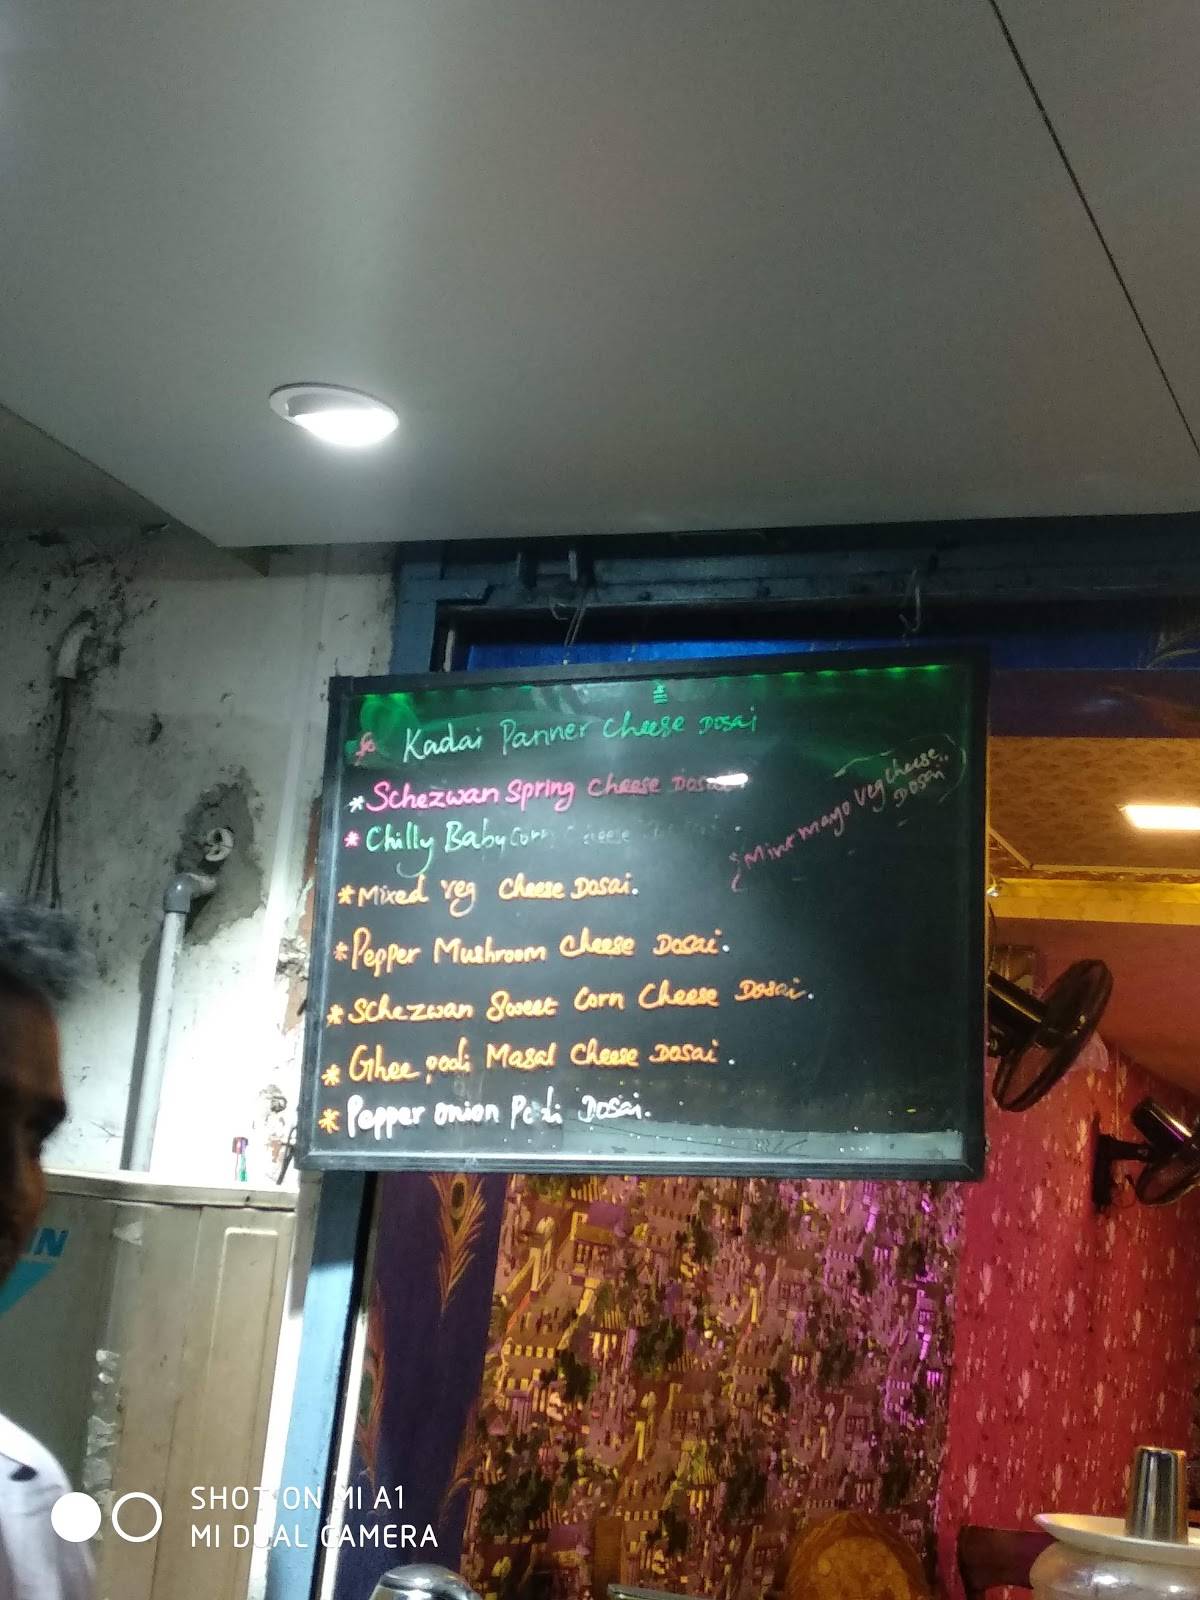 Kadai Panner Cheese Dosai
* Schezwan Spring Cheese Dosai
* Chilly Baby Corn Cheese
* Mixed Veg Cheese Dosai.
* Pepper Mushroom Cheese Dosai.
* Schezwan Sweet Corn Cheese Dosai.
* Ghee podi Masal Cheese Dosai.
* Pepper onion Podi Dosai.
* Mint mayo Veg Cheese..
Dosai
SHOT ON MI A1
MI DUAL CAMERA